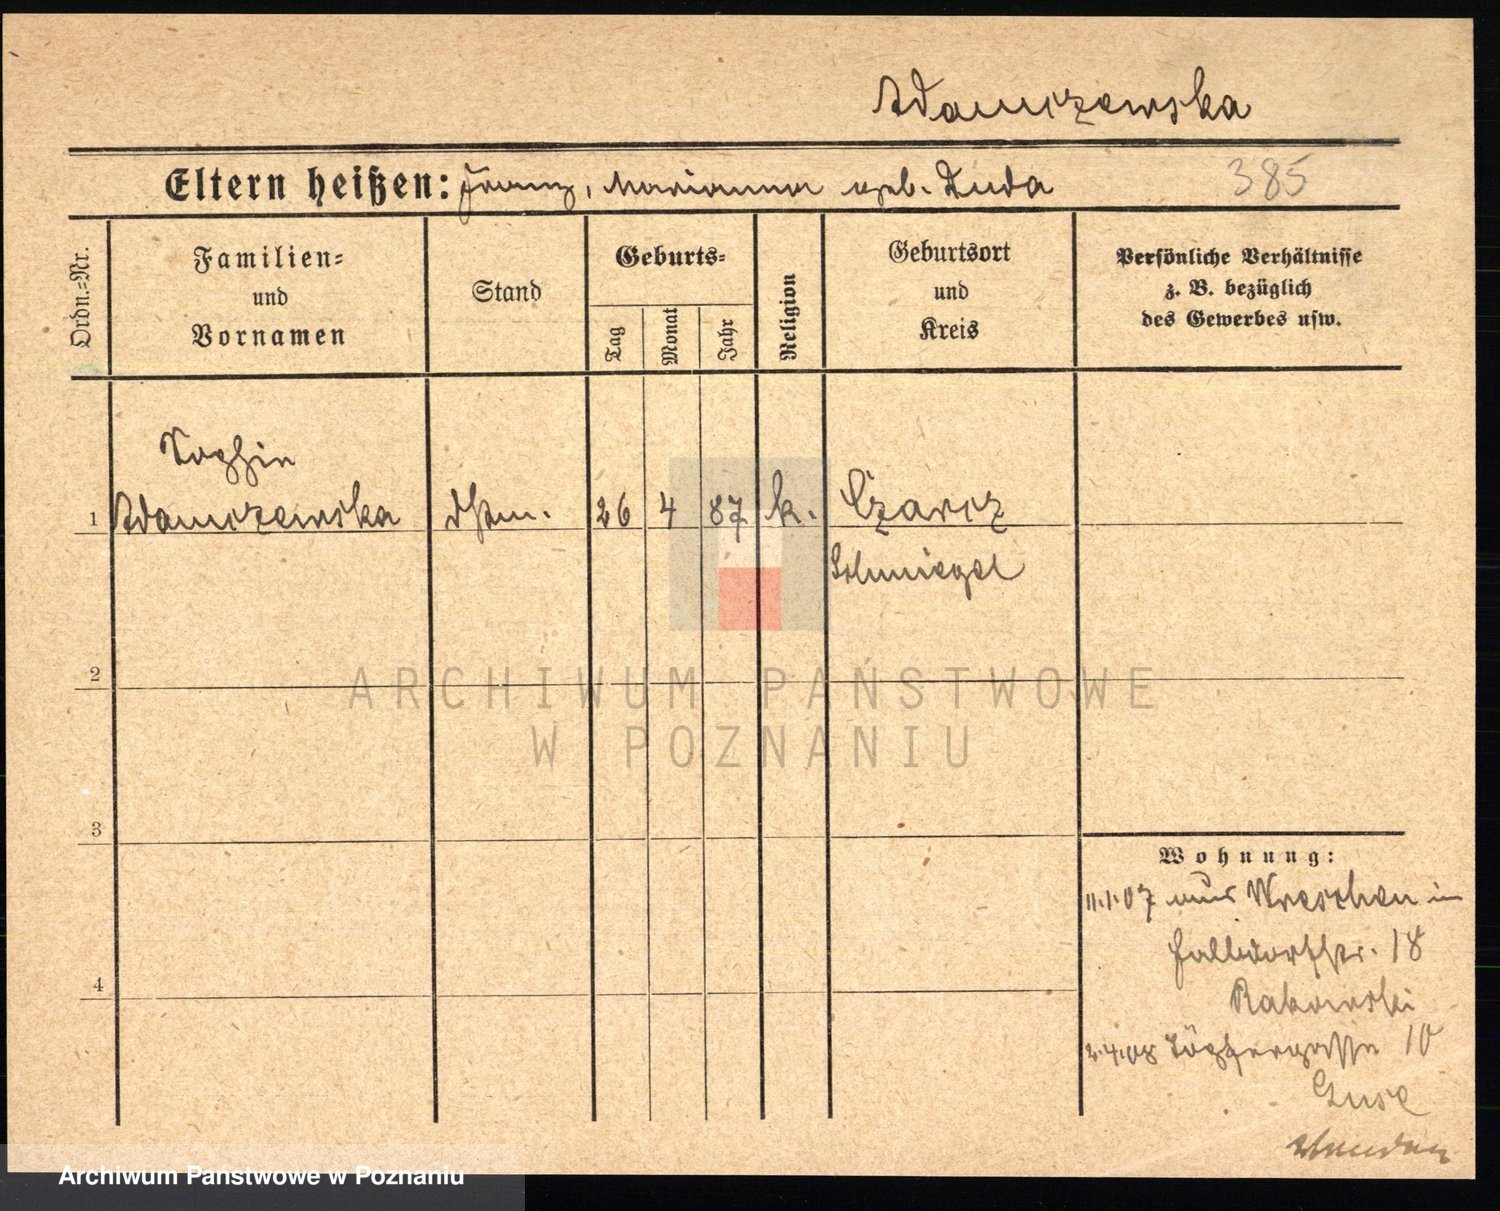 Adamczewska
Eltern heißen: Franz, Marianna geb. Duda 385
Ordn.=Nr.
Familien=
und
Vornamen
Stand
Geburts=
Tag
Monat
Jahr
Religion
Geburtsort
und
Kreis
Persönliche Verhältnisse
z. B. bezüglich
des Gewerbes usw.
1 Adamczewska 26 4 87 k. Czarcz
Schmiegel
2
3
4
Wohnung:
11.1.07 aus Wreschen in
Halbdorfstr. 18
Rakowski
2.4.08 Töpfergasse 10
Guse
ARCHIWUM PAŃSTWOWE
W POZNANIU
Archiwum Państwowe w Poznaniu